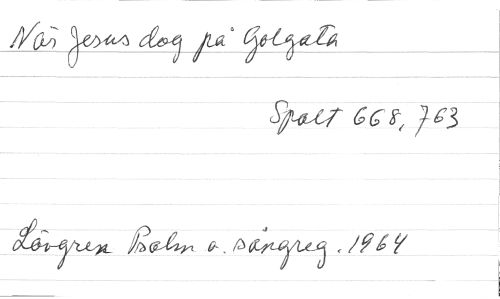 När Jesus dog på Golgata
Spalt 668, 763
Lövgren Psalm o. sångreg. 1964